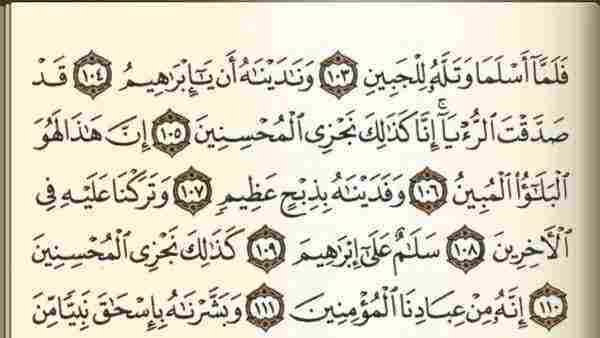 فَلَمَّآ أَسْلَمَا وَتَلَّهُۥ لِلْجَبِينِ ١٠٣ وَنَٰدَيْنَٰهُ أَن يَٰٓإِبْرَٰهِيمُ ١٠٤ قَدْ
صَدَّقْتَ ٱلرُّءْيَآ ۚ إِنَّا كَذَٰلِكَ نَجْزِى ٱلْمُحْسِنِينَ ١٠٥ إِنَّ هَٰذَا لَهُوَ
ٱلْبَلَٰٓؤُا۟ ٱلْمُبِينُ ١٠٦ وَفَدَيْنَٰهُ بِذِبْحٍ عَظِيمٍ ١٠٧ وَتَرَكْنَا عَلَيْهِ فِى
ٱلْءَاخِرِينَ ١٠٨ سَلَٰمٌ عَلَىٰٓ إِبْرَٰهِيمَ ١٠٩ كَذَٰلِكَ نَجْزِى ٱلْمُحْسِنِينَ
١١٠ إِنَّهُۥ مِنْ عِبَادِنَا ٱلْمُؤْمِنِينَ ١١١ وَبَشَّرْنَٰهُ بِإِسْحَٰقَ نَبِيًّا مِّنَ